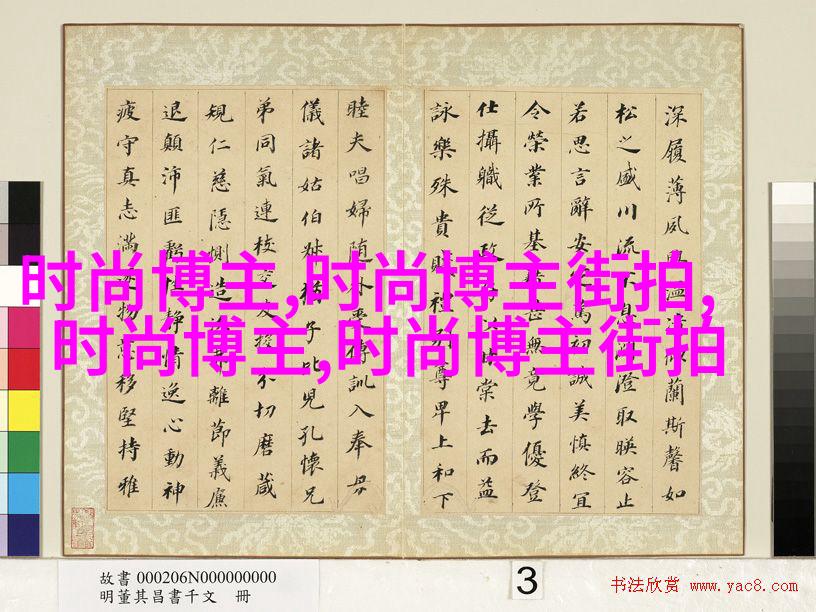 深履薄夙溫似蘭斯馨如
松之盛川流不息澄取暎容止
若思言辭安篤初誠美慎終宜
令榮業所基甚無竟學優登
仕攝職從政以棠去而益
詠樂殊貴禮別尊卑上和下
睦夫唱婦隨外受傅訓入奉母
儀諸姑伯叔猶子比兒孔懷兄
弟同氣連枝交友投分切磨箴
規仁慈隱惻造離節義廉
退顛沛匪虧性靜情逸心動神
疲守真志滿逐物意移堅持雅
时尚博主,时尚博主街拍,
时尚博主,时尚博主街拍
故書 000206N000000000
明董其昌書千文 冊
3
书法欣赏 www.yac8.com